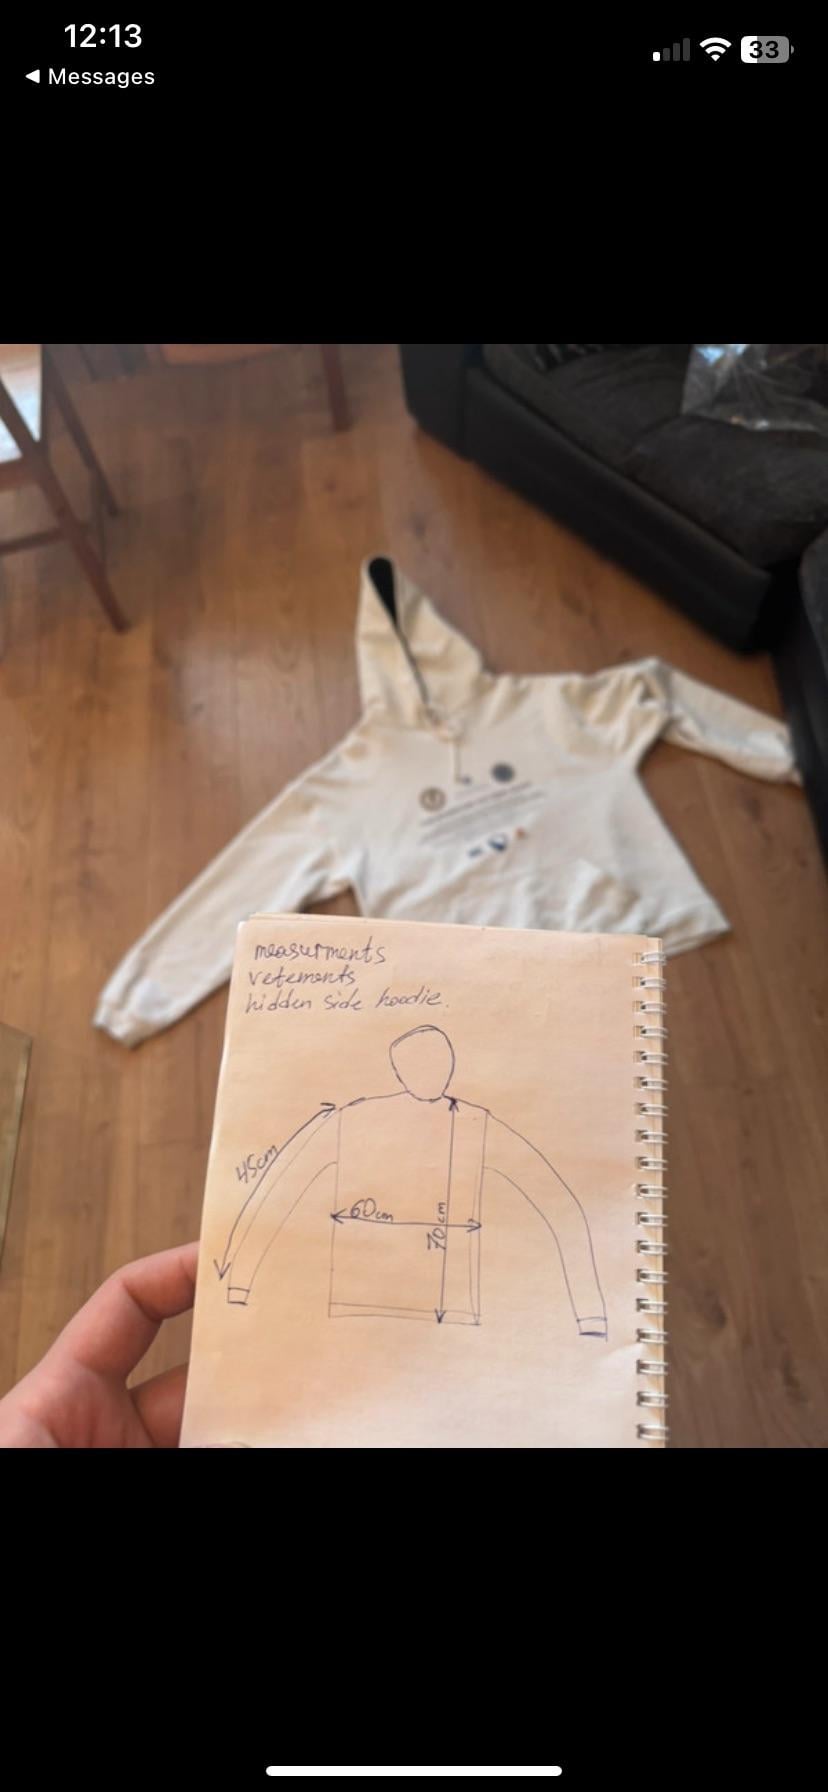 12:13
33
Messages
measurments
vetements
hidden side hoodie.
45cm
60cm
70cm